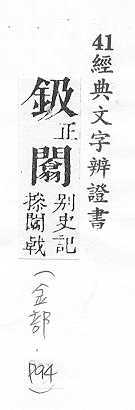 41 經典文字辨證書
鈒 正
闟 別史記
操闟戟
(金部.
P94)